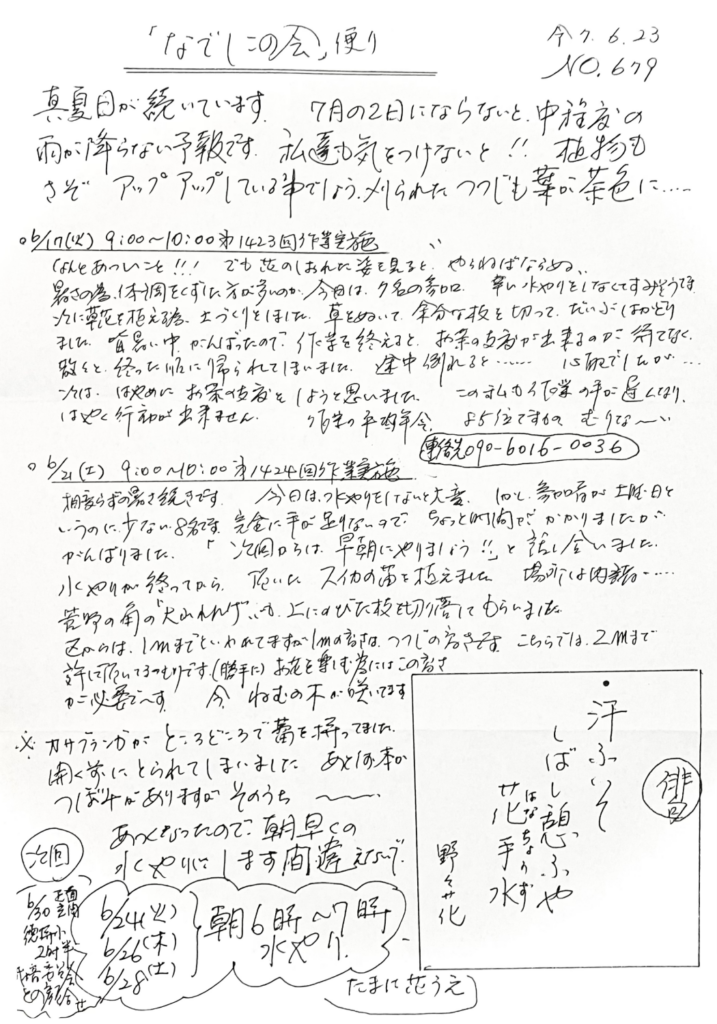 「なでしこの会」便り
令7.6.23
NO.679
真夏日が続いています。 7月の2日にならないと、中程度の
雨が降らない予報です。私達も気をつけないと!! 植物も
さぞ アップアップしている事でしょう。刈られたつつじも葉が茶色に……
○6/17(火) 9:00〜10:00 第1423回作業実施
なんとあついこと!!! でも花のしおれた姿を見ると、やらねばならぬ、
暑さの為、体調をくずした方が多いのか、今日は、7名の参加。 幸い水やりをしなくてすみそうです
次に草花を植える為、土づくりをしました。草をぬいて、余分な枝を切って、だいぶはかどり
ました。皆暑い中、がんばったので、作業を終えると、お茶の支度が出来るのが待てなく、
散々と、終った順に帰られてしまいました。 途中倒れると…… 心配でしたが…
次は、はやめにお茶の支度をしようと思いました。 この
はやく行動が出来ません。 の平均年令、 85位ですもの むりな〜い
連絡先090-6016-0036
○6/21(土) 9:00〜10:00 第1424回作業実施
相変らずの暑さ続きです。 今日は、水やりをしないと大変。 しかし、参加者が土曜日と
いうのに、少ない8名です。完全に手が足りないので ちょっと時間がかかりましたが
がんばりました。 「次回からは、早朝にやりましょう!!」と話し合いました。
水やりが終ってから、頂いた スイカの苗を植えました 場所は内緒……
の角の"大山れんげ"も、上にのびた枝を切り落してもらいました。
区からは、1mまでといわれてますが1mの高さは、つつじの高さです。こちらでは、2mまで
許して頂いてるつもりです。(勝手に) お花を楽しむ為にはこの高さ
が必要で〜す 今、ねむの木が咲いてます
※ カサブランカがところどころで蕾を持ってました。
開く前にとられてしまいました あと4,5本が
つぼみがありますが そのうち 〜〜〜
あつくなったので、朝早くの
水やりにします 間違えないで。
次回
6/24(火)
6/26(木)
6/28(土)
朝6時〜7時
水やり
たまに花うえ
6/30
2時半
との
俳句
汗ふいて
しばし憩ふや
花手水
はなちょうず
野々花